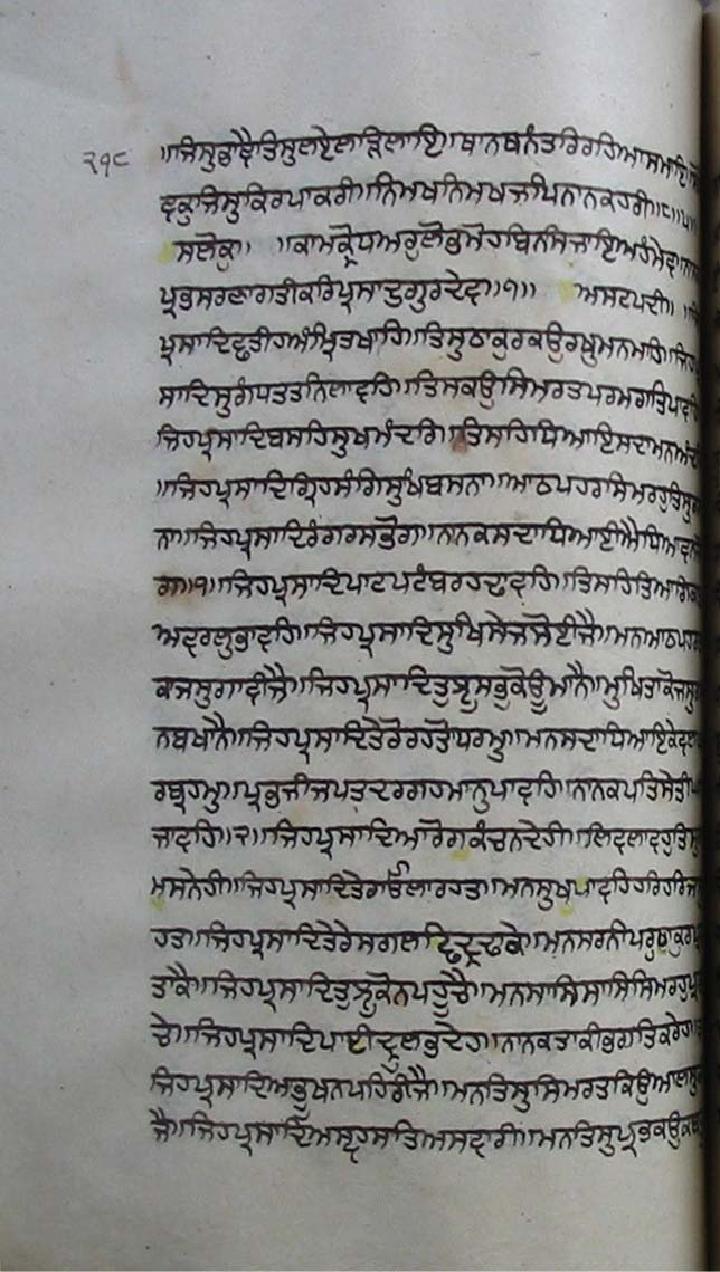 ੨੧੮ ॥ਜਿਸੁਭਾਵੈਤਿਸੁਲਏਲੜਿਲਾਇ॥ਥਾਨਥਨੰਤਰਿਰਹਿਆਸਮਾਇ
ਵਕੁਜਿਸੁਕਿਰਪਾਕਰੀ॥ਨਿਮਖਨਿਮਖਜਪਿਨਾਨਕਹਰੀ॥੮॥੫॥
ਸਲੋਕੁ॥ ॥ਕਾਮਕ੍ਰੋਧਅਰੁਲੋਭੁਮੋਹਬਿਨਸਿਜਾਇਅਹੰਮੇਵ॥
ਪ੍ਰਭਸਰਣਾਗਤੀਕਰਿਪ੍ਰਸਾਦੁਗੁਰਦੇਵ॥੧॥ ਅਸਟਪਦੀ॥
ਪ੍ਰਸਾਦਿਛਤੀਹਅੰਮ੍ਰਿਤਖਾਹਿ॥ਤਿਸੁਠਾਕੁਰਕਉਰਖੁਮਨਮਾਹਿ॥ਜਿਹ
ਸਾਦਿਸੁਗੰਧਤਤਨਿਲਾਵਹਿ॥ਤਿਸਕਉਸਿਮਰਤਪਰਮਗਤਿਪਾਵਹਿ
ਜਿਹਪ੍ਰਸਾਦਿਬਸਹਿਸੁਖਮੰਦਰਿ॥ਤਿਸਹਿਧਿਆਇਸਦਾਮਨਅੰਦ
॥ਜਿਹਪ੍ਰਸਾਦਿਗ੍ਰਿਹਸੰਗਿਸੁਖਬਸਨਾ॥ਆਠਪਹਰਸਿਮਰਹੁਤਿਸੁ
ਨਾ॥ਜਿਹਪ੍ਰਸਾਦਿਰੰਗਰਸਭੋਗ॥ਨਾਨਕਸਦਾਧਿਆਈਐਧਿਆਵਨ
ਗ॥੧॥ਜਿਹਪ੍ਰਸਾਦਿਪਾਟਪਟੰਬਰਹਢਾਵਹਿ॥ਤਿਸਹਿਤਿਆਗਿ
ਅਵਰਲੁਭਾਵਹਿ॥ਜਿਹਪ੍ਰਸਾਦਿਸੁਖਿਸੇਜਸੋਈਜੈ॥ਮਨਆਠਪਹਰ
ਕਜਸੁਗਾਵੀਜੈ॥ਜਿਹਪ੍ਰਸਾਦਿਤੁਝੁਸਭੁਕੋਊਮਾਨੈ॥ਮੁਖਿਤਾਕੋਜਸੁ
ਨਬਖਾਨੈ॥ਜਿਹਪ੍ਰਸਾਦਿਤੇਰੋਰਹਤੋਧਰਮੁ॥ਮਨਸਦਾਧਿਆਇਕੇਵਲ
ਰਬ੍ਰਹਮੁ॥ਪ੍ਰਭੁਜੀਜਪਤਦਰਗਹਮਾਨੁਪਾਵਹਿ॥ਨਾਨਕਪਤਿਸੇਤੀ
ਜਾਵਹਿ॥੨॥ਜਿਹਪ੍ਰਸਾਦਿਆਰੋਗਕੰਚਨਦੇਹੀ॥ਲਿਵਲਾਵਹੁਤਿਸੁ
ਮਸਨੇਹੀ॥ਜਿਹਪ੍ਰਸਾਦਿਤੇਰਾਓਲਾਰਹਤ॥ਮਨਸੁਖੁਪਾਵਹਿਹਰਿਹਰਿਜ
ਹਤ॥ਜਿਹਪ੍ਰਸਾਦਿਤੇਰੇਸਗਲਛਿਦ੍ਰਢਾਕੇ॥ਮਨਸਰਨੀਪਰੁਠਾਕੁਰ
ਤਾਕੈ॥ਜਿਹਪ੍ਰਸਾਦਿਤੁਝੁਕੋਨਪਹੂਚੈ॥ਮਨਸਾਸਿਸਾਸਿਸਿਮਰਹੁ
ਚੇ॥ਜਿਹਪ੍ਰਸਾਦਿਪਾਈਦ੍ਰੁਲਭਦੇਹ॥ਨਾਨਕਤਾਕੀਭਗਤਿਕਰੇਹ
ਜਿਹਪ੍ਰਸਾਦਿਅਭੂਖਨਪਹਿਰੀਜੈ॥ਮਨਤਿਸੁਸਿਮਰਤਕਿਉਆਲਸੁ
ਜੈ॥ਜਿਹਪ੍ਰਸਾਦਿਅਸ੍ਵਹਸਤਿਅਸਵਾਰੀ॥ਮਨਤਿਸੁਪ੍ਰਭਕਉਕਬ